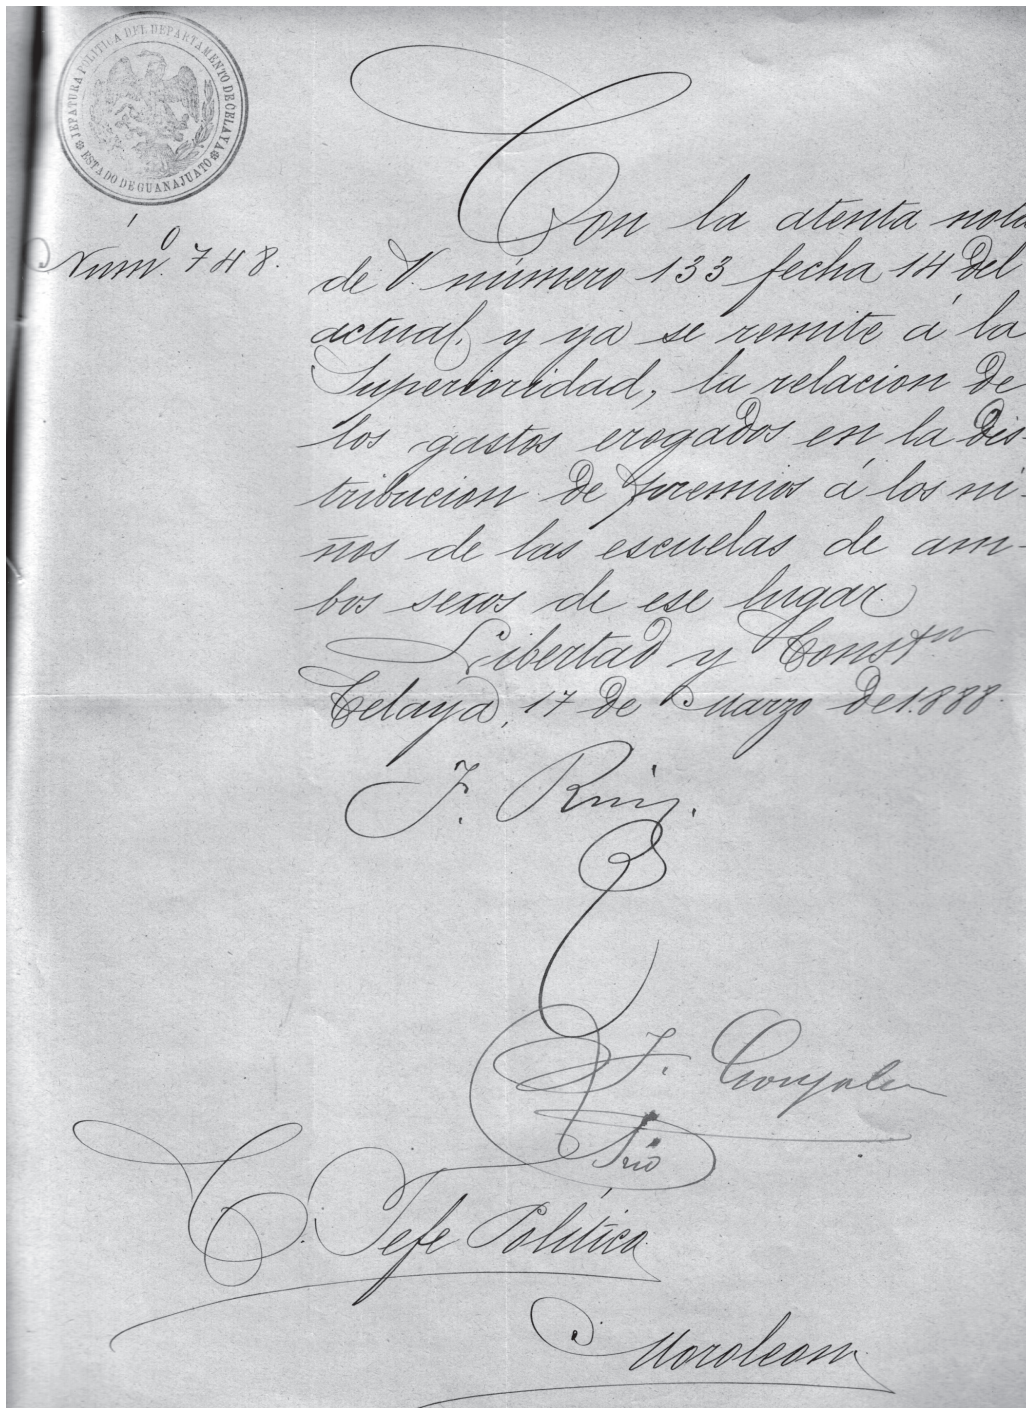 JEFATURA POLITICA DEL DEPARTAMENTO DE CELAYA
ESTADO DE GUANAJUATO
Núm.o 748.
Con la atenta nota
de V. número 133 fecha 14 del
actual, y ya se remite á la
Superioridad, la relacion de
los gastos erogados en la dis-
tribucion de premios á los ni-
ños de las escuelas de am-
bos sexos de ese lugar.
Libertad y Constn
Celaya, 17 de Marzo de 1.888.
F. Ruiz.
F. Gonzalez
Srio
C. Jefe Político
Moroleon